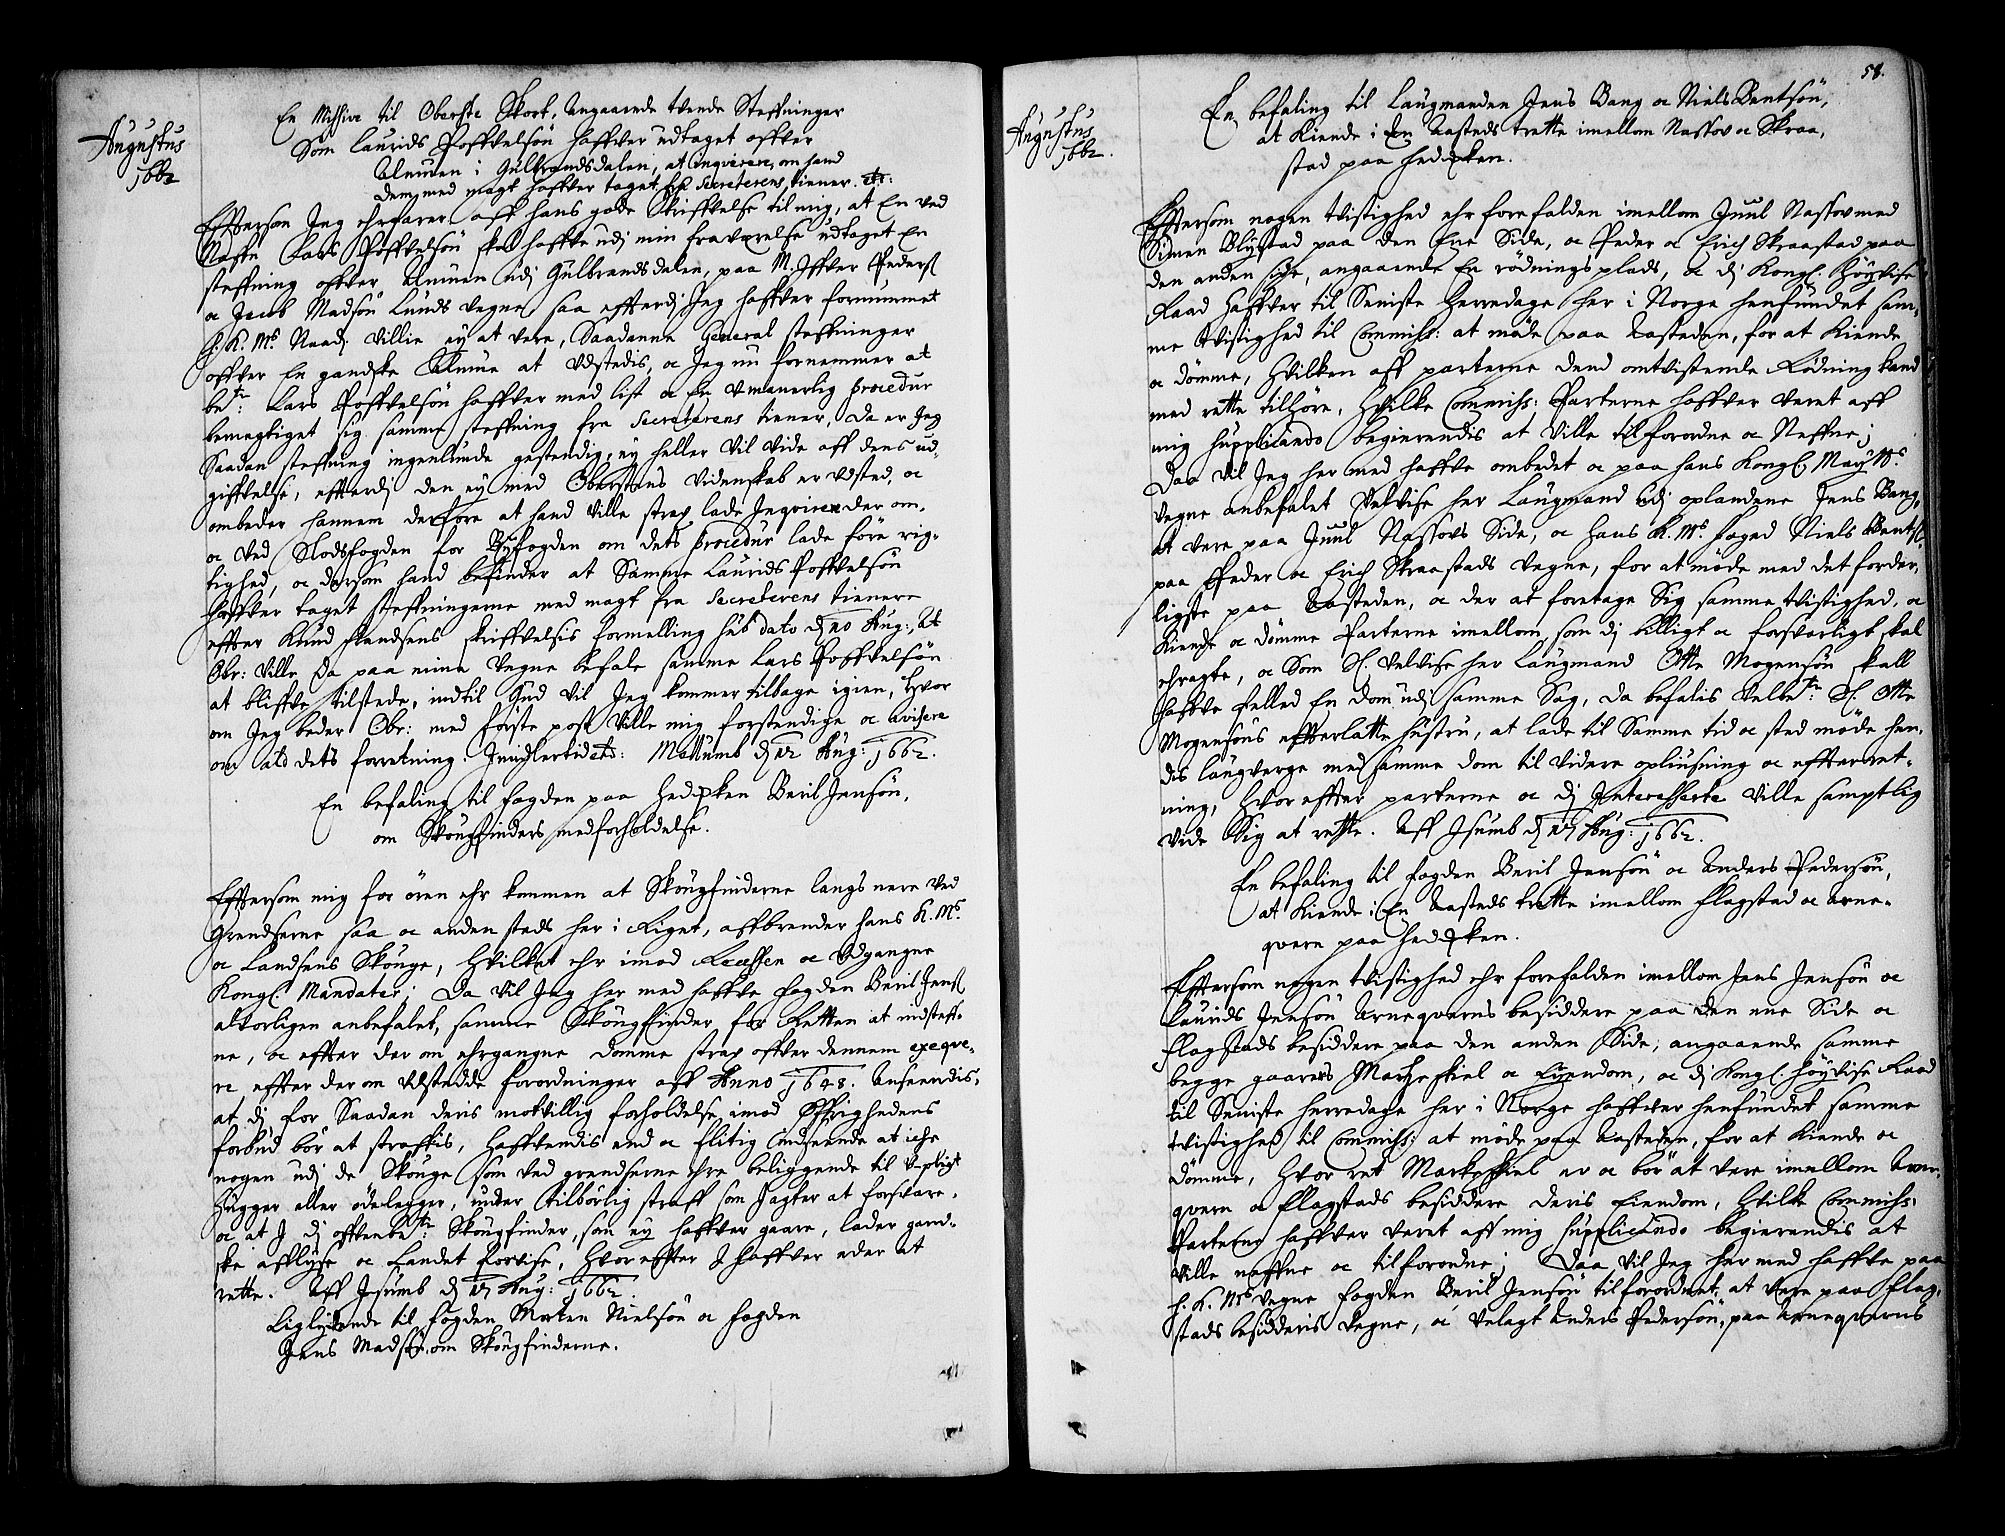 Augustus
1662
En Missive til Oberste Skort, Angaaende tvende Steffninger
Som Laurids Poffvelsön haffver udtaget offver
Almuen i Gulbrandsdalen, at inqvirere, om hand
dem med magt haffver taget fra Secreterens tiener. etc:
Effterson Jeg ehrfarer aff hans gode Skriffvelse til mig, at En ved
Naffn Lars Poffvelsön skal haffve udj min fraværelse udtaget En
steffning offver Almuen udj Gulbrandsdalen, paa M. Iffver Peders
oc Jacob Madsön Lunds vegne saa effterdj Jeg haffver fornummet
h. K. Ms. Naad. Villie ey at vere, Saadanne General steffninger
offver En gandske Almue at Udstedis, oc Jeg nu fornemmer at
bete: Lars Poffvelsön haffver med list oc En Umanerlig procedur
bemegtiget sig samme steffning fra Secreterens tiener, da er Jeg
Saadan steffning ingenlunde gestendig, ey heller vil vide aff dens ud-
giffvelse, effterdj den ey med Oberstens Videnskab er Udsted, oc
ombeder hannem derfore at hand ville strax lade Inqvirere der om,
oc ved Slodsfogden for Byfogden om dets procedur lade före rig-
tighed, oc dersom hand befinder at Samme Laurids Poffvelsön
haffver taget steffningerne med magt fra Secreterens tienere
effter Knud skriffvelsis formelling sub dato d. 10 Aug:, At
Obr: Ville da paa mine Vegne befale samme Lars Poffvelsön
at bliffve tilstede, indtil Gud vil Jeg kommer tilbage igien, hvor
om Jeg beder Obr: med förste post ville mig forstendige oc avisere
om ald dets forretning. Immidlertid etc: Mossumb d. 12 Aug: 1662.
En befaling til fogden paa Hedemarken Beril Jensön,
om Skougfinders medforholdelse.
Effterson mig for ören ehr kommen at Skougfinderne langs nere ved
Grendserne saa oc anden steds her i Riget, affbrender hans K. Ms.
oc Landsens Skouge, hvilket ehr imod Recessen oc Udgangne
Kongl. Mandater; Da vil Jeg her med haffve fogden Beril Jens
alvorligen anbefalet, samme Skougfinder for Retten at indsteff-
ne, oc effter der om ehrgangne domme strax offver dennem exeqve-
re effter der om Udstedde forordninger aff Anno 1648. Anseendis,
at dj for Saadan deris motvillig forholdelse imod Öffrighedens
forbud bör at straffis, haffvendis end oc flitig indseende at iche
nogen udj de Skouge som ved grendserne ehre beliggende til Upligt
hugger eller ödelegger, under tilbörlig straff som Jagter at forsvare,
oc at I dj offvenbete: Skougfinder, som ey haffver gaare, lader gand-
ske afflyse oc Landet forvise, hvor effter I haffver eder at
rette. Aff Isumb d. 17 Aug: 1662.
Liglydende til fogden Morten Nielsön oc fogden
Jens Madsön, om Skougfinderne.
58.
Augustus
1662.
En befaling til Laugmanden Jens Bang oc Niels Bentsön,
at Kiende i En Aasteds trette imellom Nassov oc Skraa,
stad paa Hedemarken.
Effterson nogen tvistighed ehr forefalden imellom Juul Nassov med
Simen Blystad paa den Ene Side, oc Peder oc Erich Skraastad paa
den anden side, angaaende En rödnings plads, oc dj Kongl. Höyvise
Raad haffver til Seniste Herredage her i Norge henfundet sam-
me tvistighed til Commiss: at möde paa Aasteden, for at Kiende
oc dömme, hvilken aff parterne dend omtvistende Rödning kand
med rette tilhöre, hvilke Commiss: Parterne haffver veret aff
mig supplicando begierendis at Ville tilforordne oc Neffne;
Daa vil Jeg her med haffve ombedet oc paa hans Kongl. Mayts.
vegne anbefalet Velvise her Laugmand udj oplandene Jens Bang,
at vere paa Juul Nassovs Side, oc hans K. Ms. foged Niels Bents
paa Peder oc Erich Skraastads vegne, for at möde med det forder-
ligste paa Aasteden, oc der at foretage Sig samme tvistighed, oc
Kiende oc dömme Parterne imellom, som dj billigt oc forsvarligt skal
ehragte, oc Som Sl. velvise her Laugmand Otte Mogensön skall
haffve felled En dom udj samme Sag, da befalis Velbete: Sl. Otte
Mogensöns effterlatte hustru, at lade til Samme tid oc sted möde hen-
dis laugverge med samme dom til videre oplysning oc effterret-
ning, hvor effter parterne oc dj Interesserte ville samptlig
vide Sig at rette. Aff Isumb d. 17 Aug: 1662.
En befaling til fogden Beril Jensön oc Anders Pedersön,
at Kiende i En Aasteds trette imellom Flagstad oc Arne-
qvern paa Hedemarken.
Effterson nogen tvistighed ehr forefalden imellom Jens Jensön oc
Laurids Jensön Arneqverns besiddere paa den ene Side oc
Flagstads besiddere paa den anden Side, angaaende samme
begge gaarers Marcheskiel oc Eyendom, oc dj Kongl. höyvise Raad
til Seniste herredage her i Norge haffver henfundet samme
tvistighed til Commiss: at möde paa Aasteden, for at Kiende oc
dömme, hvor ret Markeskiel er oc bör at vere imellom Arne-
qvern oc Flagstads besiddere deris Eiendom, hvilke Commiss:
Parterne haffver veret aff mig supplicando begierendis at
ville neffne oc tilforordne; Daa vil Jeg her med haffve paa
h. K. Ms. vegne fogden Beril Jensön tilforordnet, at vere paa Flag-
stads besidderis vegne, oc Velagt Anders Pedersön, paa Arneqverns